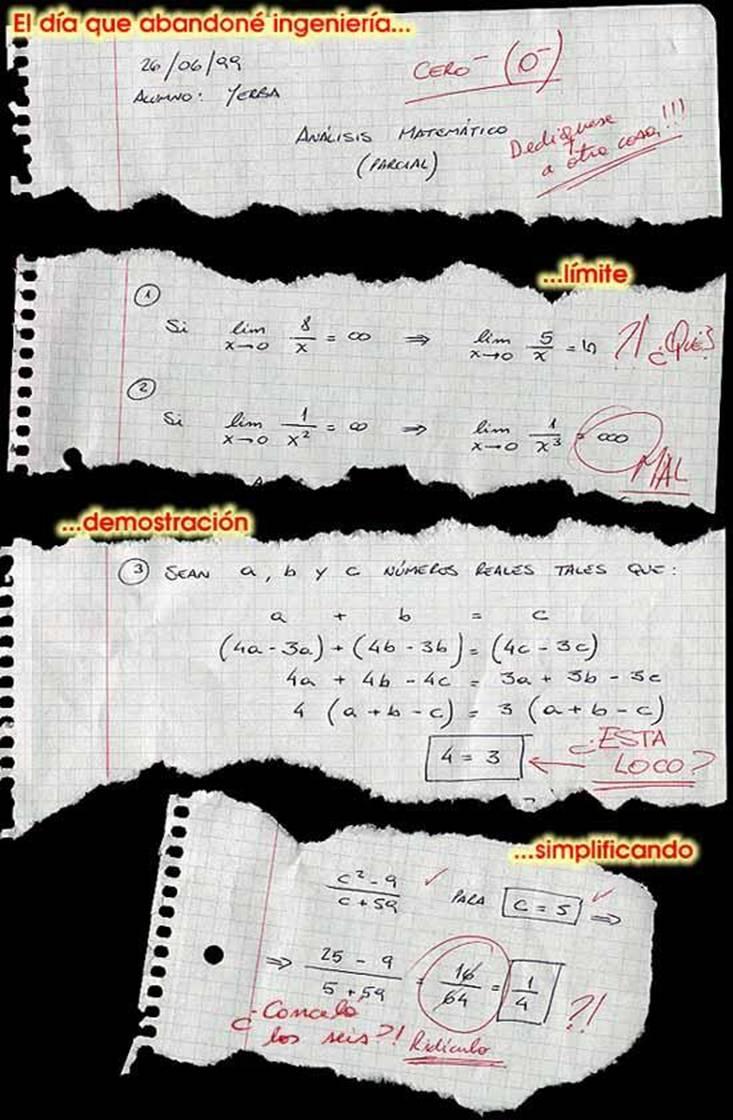 El día que abandoné ingeniería...
26/06/99
CERO⁻ (0⁻)
ALUMNO: YERBA
ANÁLISIS MATEMÁTICO
(PARCIAL)
Dediquese
a otra cosa!!!
...límite
①
Si lim x→0 8/x = ∞ ⇒ lim x→0 5/x = ᔕ ?! ¿QUÉ?
②
Si lim x→0 1/x² = ∞ ⇒ lim x→0 1/x³ = ooo
MAL
...demostración
③ SEAN a, b y c NÚMEROS REALES TALES QUE:
a + b = c
(4a - 3a) + (4b - 3b) = (4c - 3c)
4a + 4b - 4c = 3a + 3b - 3c
4 (a + b - c) = 3 (a + b - c)
4 = 3 ← ¿ESTA
LOCO?
...simplificando
c² - 9 / c + 59 ✓ PARA c = 5 ✓ ⇒
⇒ 25 - 9 / 5 + 59 = 16/64 = 1/4 ?!
¿Cancela
los seis?! Ridículo